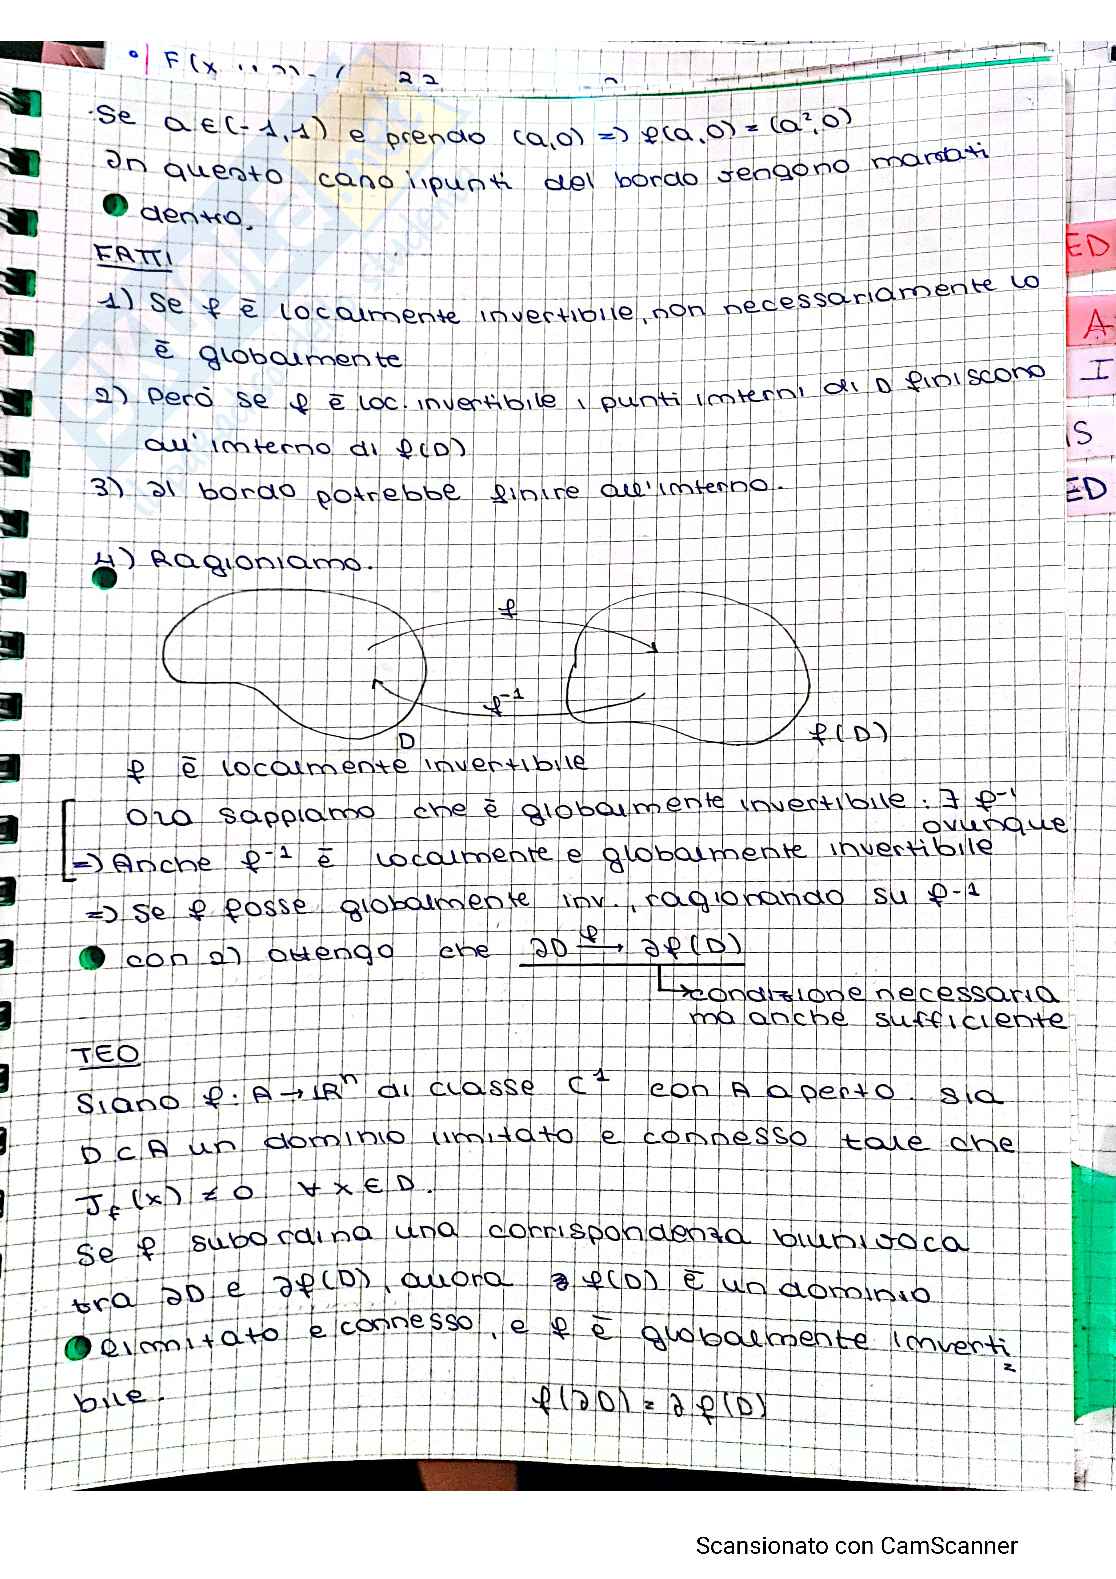 Se a ∈ (-1,1) e prendo (a,0) => f(a,0) = (a²,0)
In questo caso i punti del bordo vengono mandati
dentro.
FATTI
1) Se f è localmente invertibile, non necessariamente lo
è globalmente
2) Però se f è loc. invertibile i punti interni di D finiscono
all'interno di f(D)
3) Il bordo potrebbe finire all'interno.
4) Ragioniamo.
f
f⁻¹
D
f(D)
f è localmente invertibile
Ora sappiamo che è globalmente invertibile: ∃ f⁻¹
ovunque
=> Anche f⁻¹ è localmente e globalmente invertibile
=> Se f fosse globalmente inv., ragionando su f⁻¹
con 2) ottengo che ∂D →f ∂f(D)
↳condizione necessaria
ma anche sufficiente
TEO
Siano f: A → ℝⁿ di classe C¹ con A aperto. Sia
D ⊂ A un dominio limitato e connesso tale che
J_f(x) ≠ 0 ∀ x ∈ D.
Se f subordina una corrispondenza biunivoca
tra ∂D e ∂f(D), allora f(D) è un dominio
limitato e connesso, e f è globalmente inverti
bile.
f(∂D) = ∂f(D)
ED
A
I
IS
ED
Scansionato con CamScanner